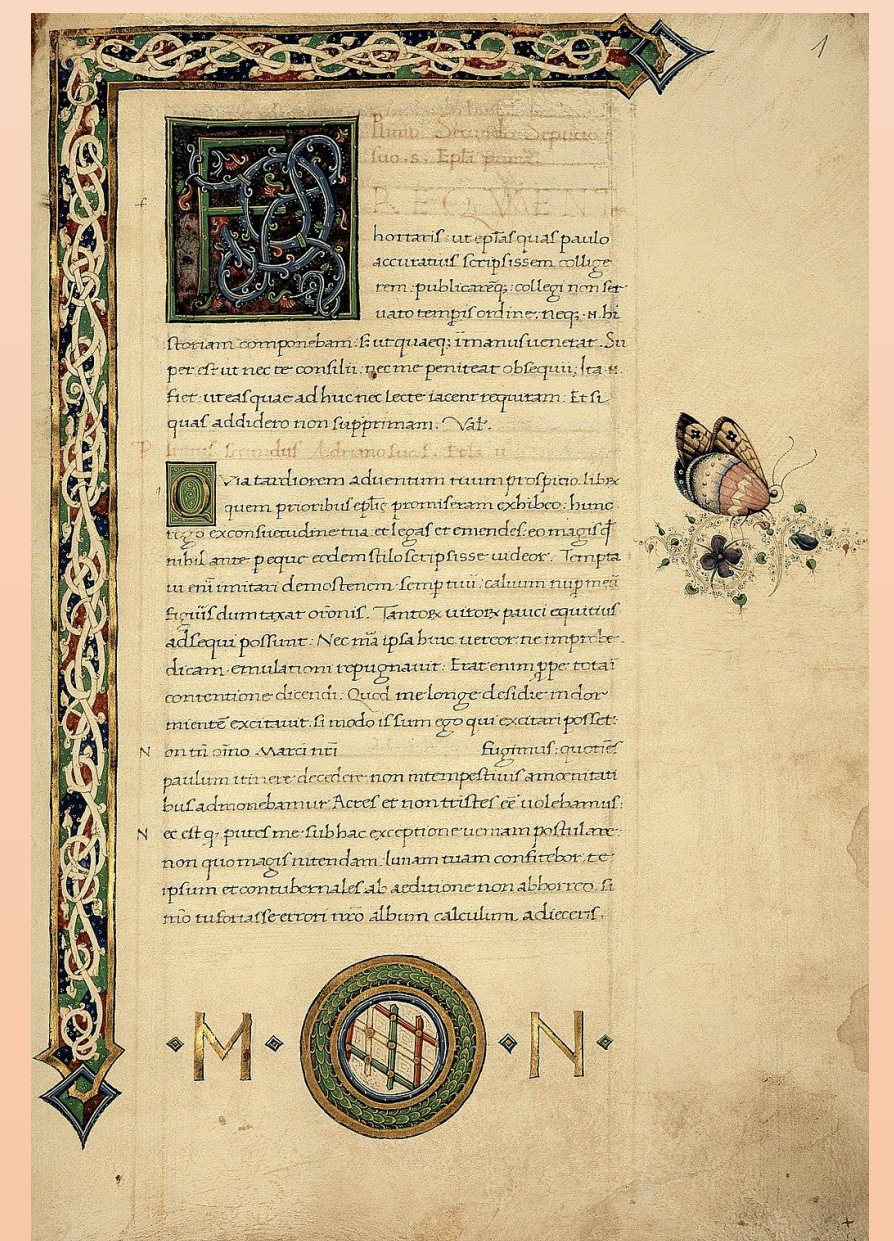 1
Plinius Secundus Septicio
suo .s. Epl̃a prima.
F
REQVENT
f
hortaris: ut ep̃las quas paulo
accuratius scripsissem collige
rem: publicareq;: collegi non ser
uato temp̃is ordine: neq; .N. hi
storiam componebam: s; ut quaeq; ĩ manus uenerat. Su
per est ut nec te consilii: nec me peniteat obsequii: Ita .n.
fiet: ut eas quae ad huc nec lecte iacent requiram: Et si
quas addidero non supprimam. Val̃.
P linius secundus Adriano suo .s. Ep̃la ii
Q Via tardiorem aduentum tuum prospicio: libꝝ
quem prioribus ep̃lis promiseram exhibeo: hunc
rogo ex consuetudine tua et legas et emendes: eo magis q̃
nihil ante peque eodem stilo scripsisse uideor. Tempta
ui eni imitari demostenem semp tuũ: caluum nup meũ
figuris dum taxat or̃onis. Tantoꝝ uiroꝝ pauci equitius
adsequi possunt: Nec mã ipsa huic uereor ne improbe
dicam emulationi repugnauit: Erat enim ꝓpe tota ĩ
contentione dicendi: Quod me longe desidie indor
mientẽ excitauit: si modo is sum ego qui excitari posset:
N on tñ oĩno Marci nr̃i fugimus: quotiẽs
paulum itinere decedere non intempestiuis amoenitati
bus admonebamur Acres eẽ non tristes eẽ uolebamus:
N ec est q; putes me sub hac exceptione ueniam postulare:
non quo magis nitendam: limam tuam confitebor: te
ipsum et contubernales ab aeditione non abhorreo. si
mõ tu fortasse errori nr̃o album calculum adieceris.
M N